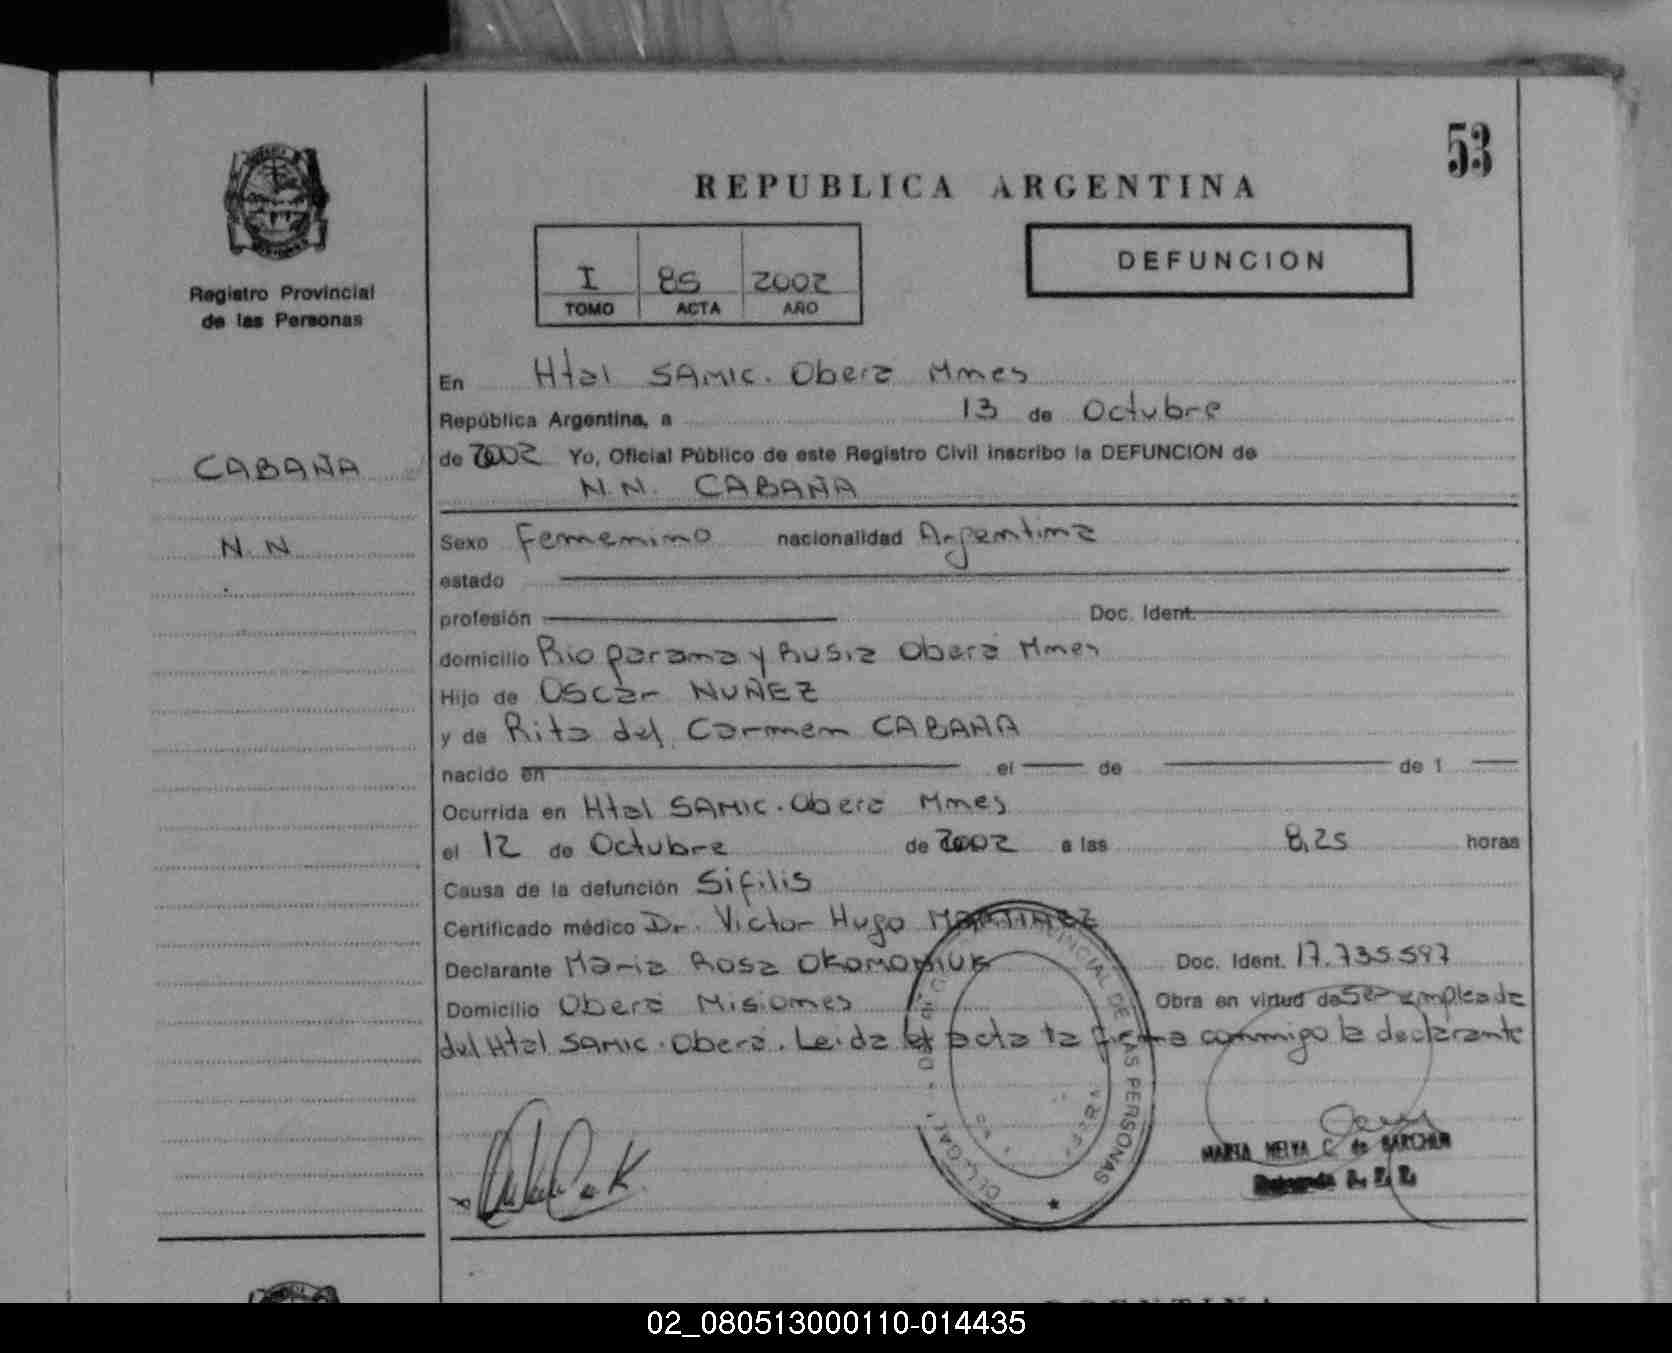 53
REPUBLICA ARGENTINA
I 85 2002
TOMO ACTA AÑO
DEFUNCION
Registro Provincial
de las Personas
CABAÑA
N.N
En Htal SAMIC. Oberá Mnes
República Argentina, a 13 de Octubre
de 2002 Yo, Oficial Público de este Registro Civil inscribo la DEFUNCION de
N.N. CABAÑA
Sexo Femenino nacionalidad Argentina
estado
profesión Doc. Ident.
domicilio Rio parana y Rusia Oberá Mnes
Hijo de Oscar NUÑEZ
y de Rita del Carmen CABAÑA
nacido en el de de 1
Ocurrida en Htal SAMIC. Oberá Mnes
el 12 de Octubre de 2002 a las 8,25 horas
Causa de la defunción Sifilis
Certificado médico Dr. Victor Hugo MARTINEZ
Declarante Maria Rosa OKONONIUK Doc. Ident. 17.735.597
Domicilio Oberá Misiones Obra en virtud de ser empleada
del Htal SAMIC. Oberá. Leida el acta la firma conmigo la declarante
PROVINCIAL DE LAS PERSONAS
MARTA NELVA C. de
02_080513000110-014435